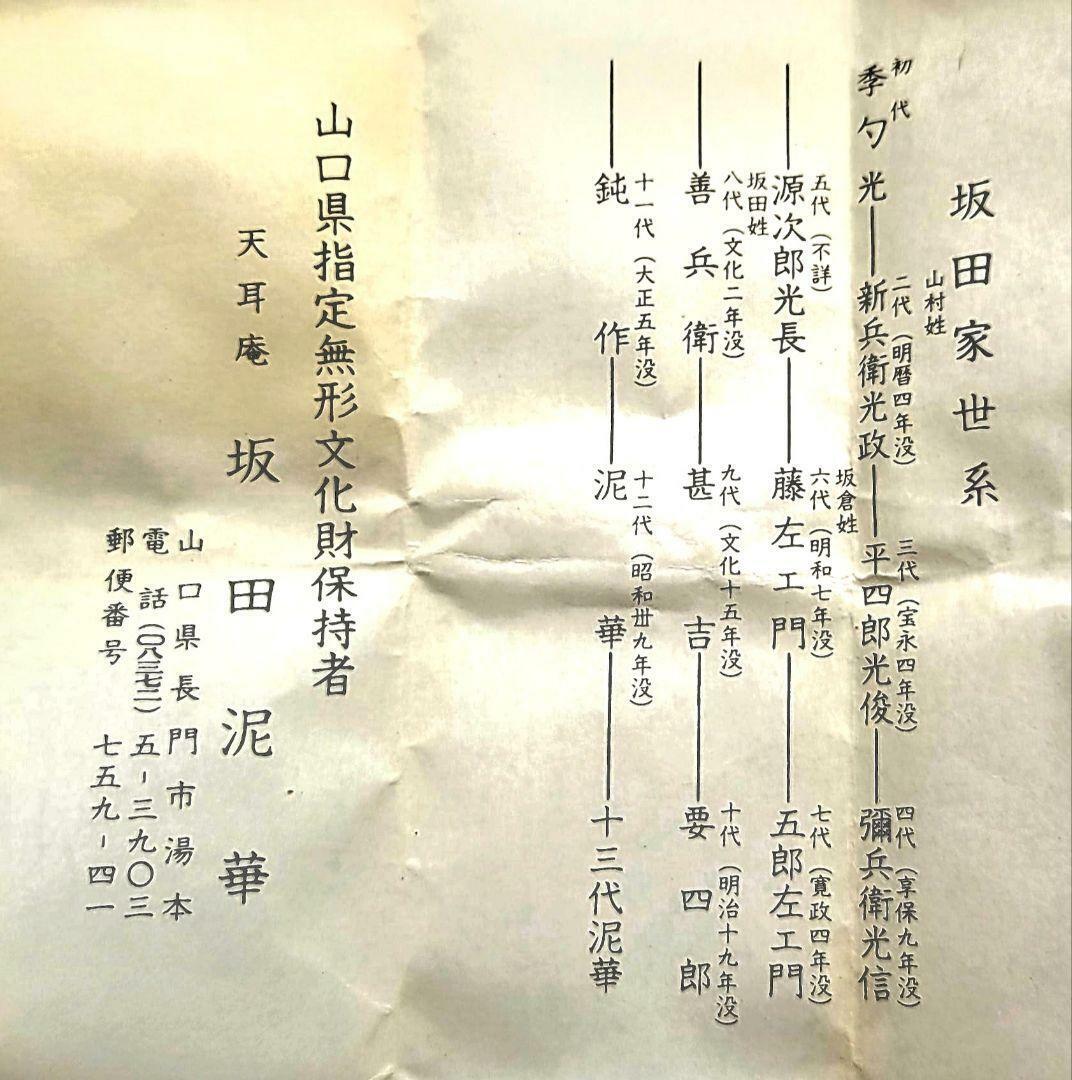 坂田家世系
山村姓
初代
二代(明暦四年没)
三代(宝永四年没)
四代(享保九年没)
季勺光―新兵衛光政―平四郎光俊―彌兵衛光信
坂倉姓
五代(不詳)
六代(明和七年没)
七代(寛政四年没)
―源次郎光長―藤左エ門―五郎左エ門
坂田姓
八代(文化二年没)
九代(文化十五年没)
十代(明治十九年没)
―善兵衛―甚吉―要四郎
十一代(大正五年没)
十二代(昭和卅九年没)
―鈍作―泥華―十三代泥華
山口県指定無形文化財保持者
天耳庵 坂田泥華
山口県長門市湯本
電話(〇八三七二)五-三九〇三
郵便番号 七五九-四一